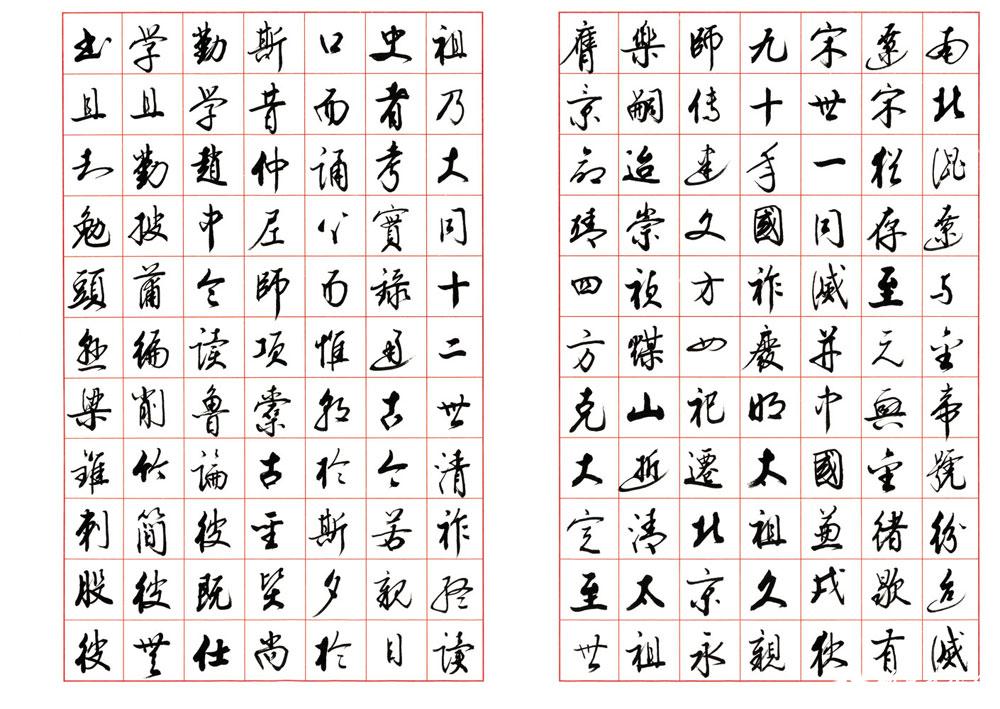 南北混遼与金帝號紛迨滅
遼宋猶存至元興金緒歇有
宋世一同滅并中國兼戎狄
九十年國祚廢明太祖久親
師传建文方四祀遷北京永
樂嗣迨崇禎煤山逝清太祖
膺景命靖四方克大定至世
祖乃大同十二世清祚終读
史者考實録通古今若親目
口而誦心而惟朝於斯夕於
斯昔仲尼師項橐古聖賢尚
勤学趙中令读魯論彼既仕
学且勤披蒲編削竹簡彼無
书且知勉頭懸梁錐刺股彼